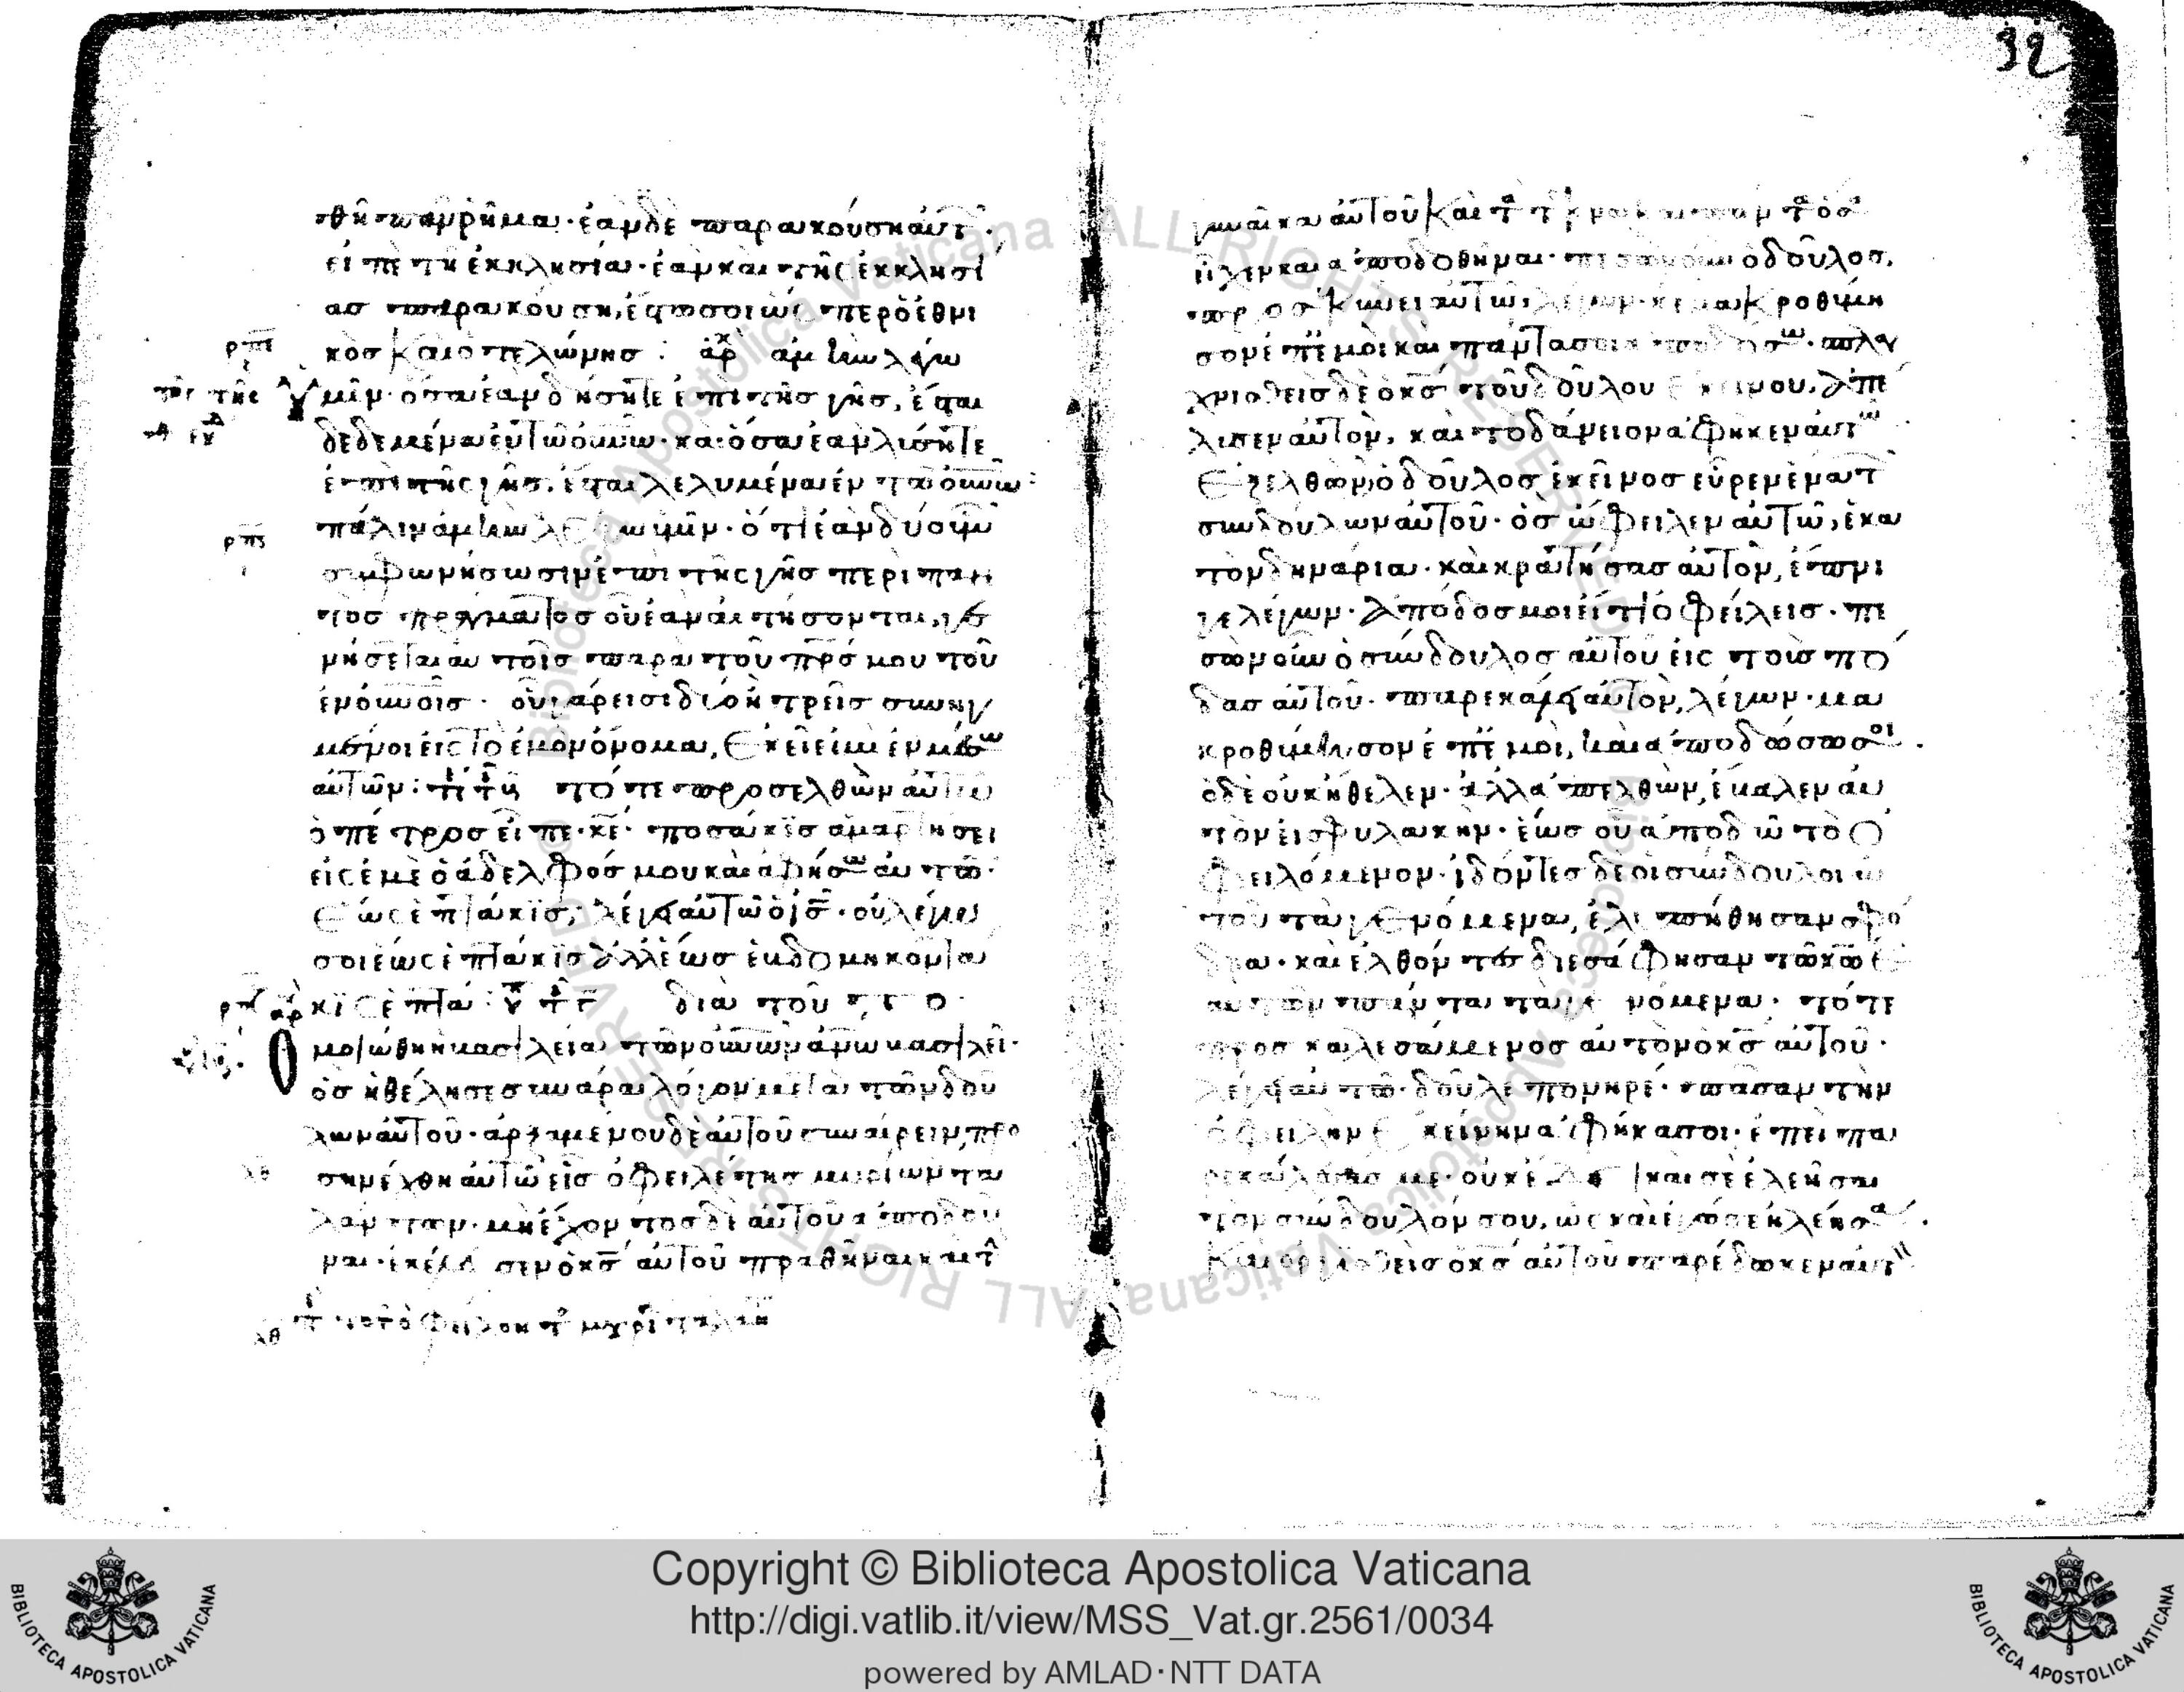 32
θῆ πᾶν ῥῆμα· ἐὰν δὲ παρακούσῃ αὐτ
εἰπὲ τῇ ἐκκλησία· ἐὰν καὶ τῆς ἐκκλησί
ασ παρακούσῃ, ἔστω σοι ὡς περ ὁ ἐθνι
κὸσ καὶ ὁ τελώνησ : ἀρχ ἀμὴν λέγω
ὑμῖν· ὅσα ἐὰν δήσητε ἐπὶ τῆσ γῆσ, ἔσται
δεδεμένα ἐν τῶ οὐνω· καὶ ὅσα ἐὰν λύσητε
ἐπὶ τῆς γῆσ, ἔσται λελυμένα ἐν τῶ οὐνω :
πάλιν ἀμὴν λέγω ὑμῖν· ὅτι ἐὰν δύο ὑμῶν
συμφωνήσωσιν ἐπὶ τῆς γῆσ περὶ παν
τὸσ πράγματοσ οὗ ἐὰν αἰτήσονται, γε
νήσεται αὐτοῖσ παρὰ τοῦ πρσ μου τοῦ
ἐν οὐνοῖσ· οὗ γάρ εἰσι δύο ἢ τρεῖσ συνηγ
μένοι εἰς τὸ ἐμὸν ὄνομα, ἐκεῖ εἰμι ἐν μέσω
αὐτῶν : τότε προσελθὼν αὐτῶ
ὁ πέτροσ εἶπε· κε· ποσάκισ ἁμαρτήσει
εἰς ἐμὲ ὁ ἀδελφόσ μου καὶ ἀφήσω αὐτῶ·
ἕως ἑπτάκισ; λέγει αὐτῶ ὁ ισ· οὐ λέγω
σοι ἕως ἑπτάκισ ἀλλ' ἕωσ ἑβδομηκοντά
κις ἑπτά : διὰ τοῦτο
Ὁμοιώθη ἡ βασιλεία τῶν οὐνῶν ἀνω βασιλεῖ·
ὃσ ἠθέλησε συνᾶραι λόγον μετὰ τῶν δού
λων αὐτοῦ· ἀρξαμένου δὲ αὐτοῦ συναίρειν, προ
σηνέχθη αὐτῶ εἷσ ὀφειλέτησ μυρίων τα
λάντων· μὴ ἔχοντοσ δὲ αὐτοῦ ἀποδοῦ
ναι· ἐκέλευσεν ὁ κσ αὐτοῦ πραθῆναι καὶ τ
γυναῖκα αὐτοῦ καὶ τὰ τέκνα καὶ πάντα ὅσα
εἶχεν καὶ ἀποδοθῆναι· πεσὼν οὖν ὁ δοῦλοσ,
προσεκύνει αὐτῶ, λέγων· κε μακροθύμη
σον ἐπ' ἐμοὶ καὶ πάντα σοι ἀποδώσω· σπλαγ
χνισθεὶσ δὲ ὁ κσ τοῦ δούλου ἐκείνου, ἀπέ
λυσεν αὐτὸν, καὶ τὸ δάνειον ἀφῆκεν αὐτῶ
Ἐξελθὼν ὁ δοῦλοσ ἐκεῖνοσ εὗρεν ἕνα τ
συνδούλων αὐτοῦ· ὃσ ὤφειλεν αὐτῶ, ἑκα
τὸν δηνάρια· καὶ κρατήσασ αὐτὸν, ἔπνι
γε λέγων· ἀπόδοσ μοι εἴ τι ὀφείλεισ· πε
σὼν οὖν ὁ σύνδουλοσ αὐτοῦ εἰς τοὺσ πό
δασ αὐτοῦ· παρεκάλει αὐτὸν, λέγων· μα
κροθύμησον ἐπ' ἐμοι, καὶ ἀποδώσω σοι.
ὁ δὲ οὐκ ἤθελεν· ἀλλὰ ἀπελθὼν, ἔβαλεν αὐ
τὸν εἰσ φυλακὴν· ἕωσ οὗ ἀποδῶ τὸ ὀ
φειλόμενον· ἰδόντεσ δὲ οἱ σύνδουλοι αὐ
τοῦ τὰ γενόμενα, ἐλυπήθησαν σφό
δρα· καὶ ἐλθόντεσ διεσάφησαν τῶ κω ἑ
αυτῶν πάντα τὰ γενόμενα· τότε
προσκαλεσάμενοσ αὐτὸν ὁ κσ αὐτοῦ·
λέγει αὐτῶ· δοῦλε πονηρέ· πᾶσαν τὴν
ὀφειλὴν ἐκείνην ἀφῆκα σοι· ἐπεὶ πα
ρεκάλεσάσ με· οὐκ ἔδει καὶ σὲ ἐλεῆσαι
τὸν σύνδουλόν σου, ὡς καὶ ἐγώ σε ἠλέησα.
Καὶ ὀργισθεὶσ ὁ κσ αὐτοῦ παρέδωκεν αὐτ
Copyright © Biblioteca Apostolica Vaticana
http://digi.vatlib.it/view/MSS_Vat.gr.2561/0034
powered by AMLAD·NTT DATA
BIBLIOTECA APOSTOLICA VATICANA
BIBLIOTECA APOSTOLICA VATICANA